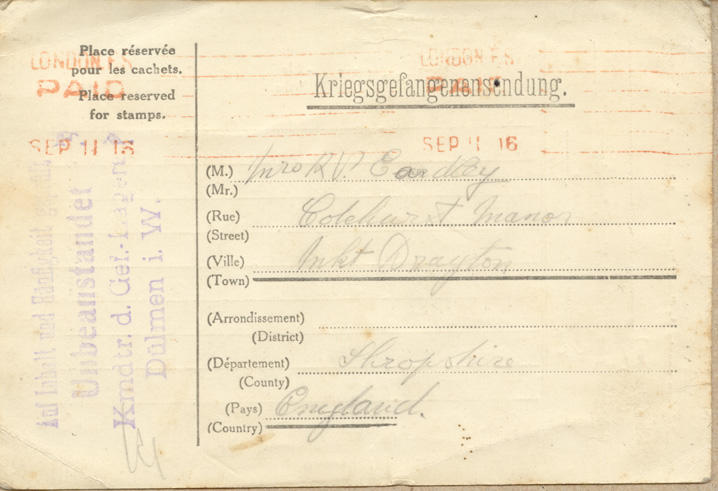 Place réservée
pour les cachets.
Place reserved
for stamps.
LONDON F.S.
PAID
SEP 11 16
LONDON F.S.
PAID
SEP 11 16
Kriegsgefangenensendung.
(M.) Mrs R V
(Mr.)
(Rue) Colehurst Manor
(Street)
(Ville) Mkt Drayton
(Town)
(Arrondissement)
(District)
(Département) Shropshire
(County)
(Pays) England.
(Country)
Auf Inhalt und Häufigkeit
Unbeanstandet
Kmdtr. d. Gef.-Lagers
Dülmen i. W.